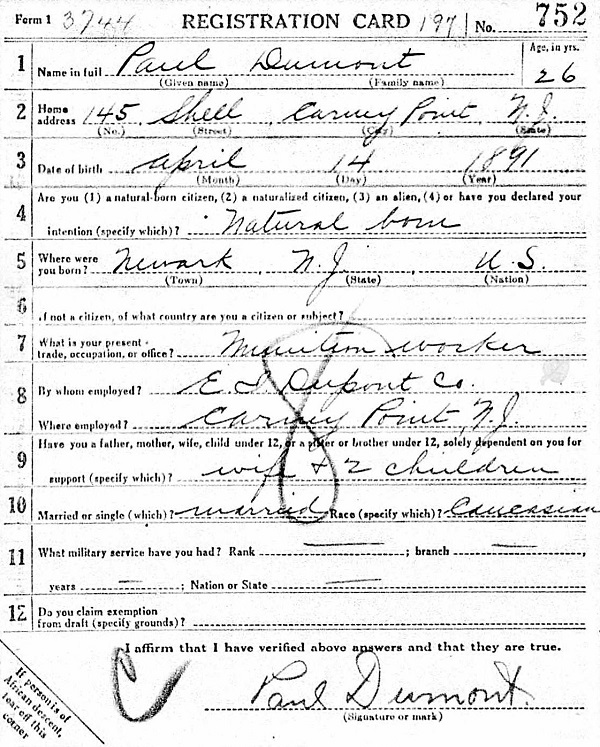 Form 1 3744 REGISTRATION CARD 197 No. 752
1 Name in full Paul Dumont Age, in yrs.
(Given name) (Family name) 26
2 Home address 145 Shell Carney Point N.J.
(No.) (Street) (City) (State)
3 Date of birth April 14 1891
(Month) (Day) (Year)
4 Are you (1) a natural-born citizen, (2) a naturalized citizen, (3) an alien, (4) or have you declared your
intention (specify which)? Natural born
5 Where were you born? Newark, N.J. U.S.
(Town) (State) (Nation)
6 If not a citizen, of what country are you a citizen or subject?
7 What is your present trade, occupation, or office? Munition worker
8 By whom employed? E I Dupont Co.
Where employed? Carney Point, N.J.
9 Have you a father, mother, wife, child under 12, or a sister or brother under 12, solely dependent on you for
support (specify which)? wife + 2 children
10 Married or single (which)? married Race (specify which)? Caucassian
11 What military service have you had? Rank — ; branch — ,
years — ; Nation or State —
12 Do you claim exemption
from draft (specify grounds)?
8
I affirm that I have verified above answers and that they are true.
Paul Dumont.
(Signature or mark)
If person is of
African descent,
tear off this
corner